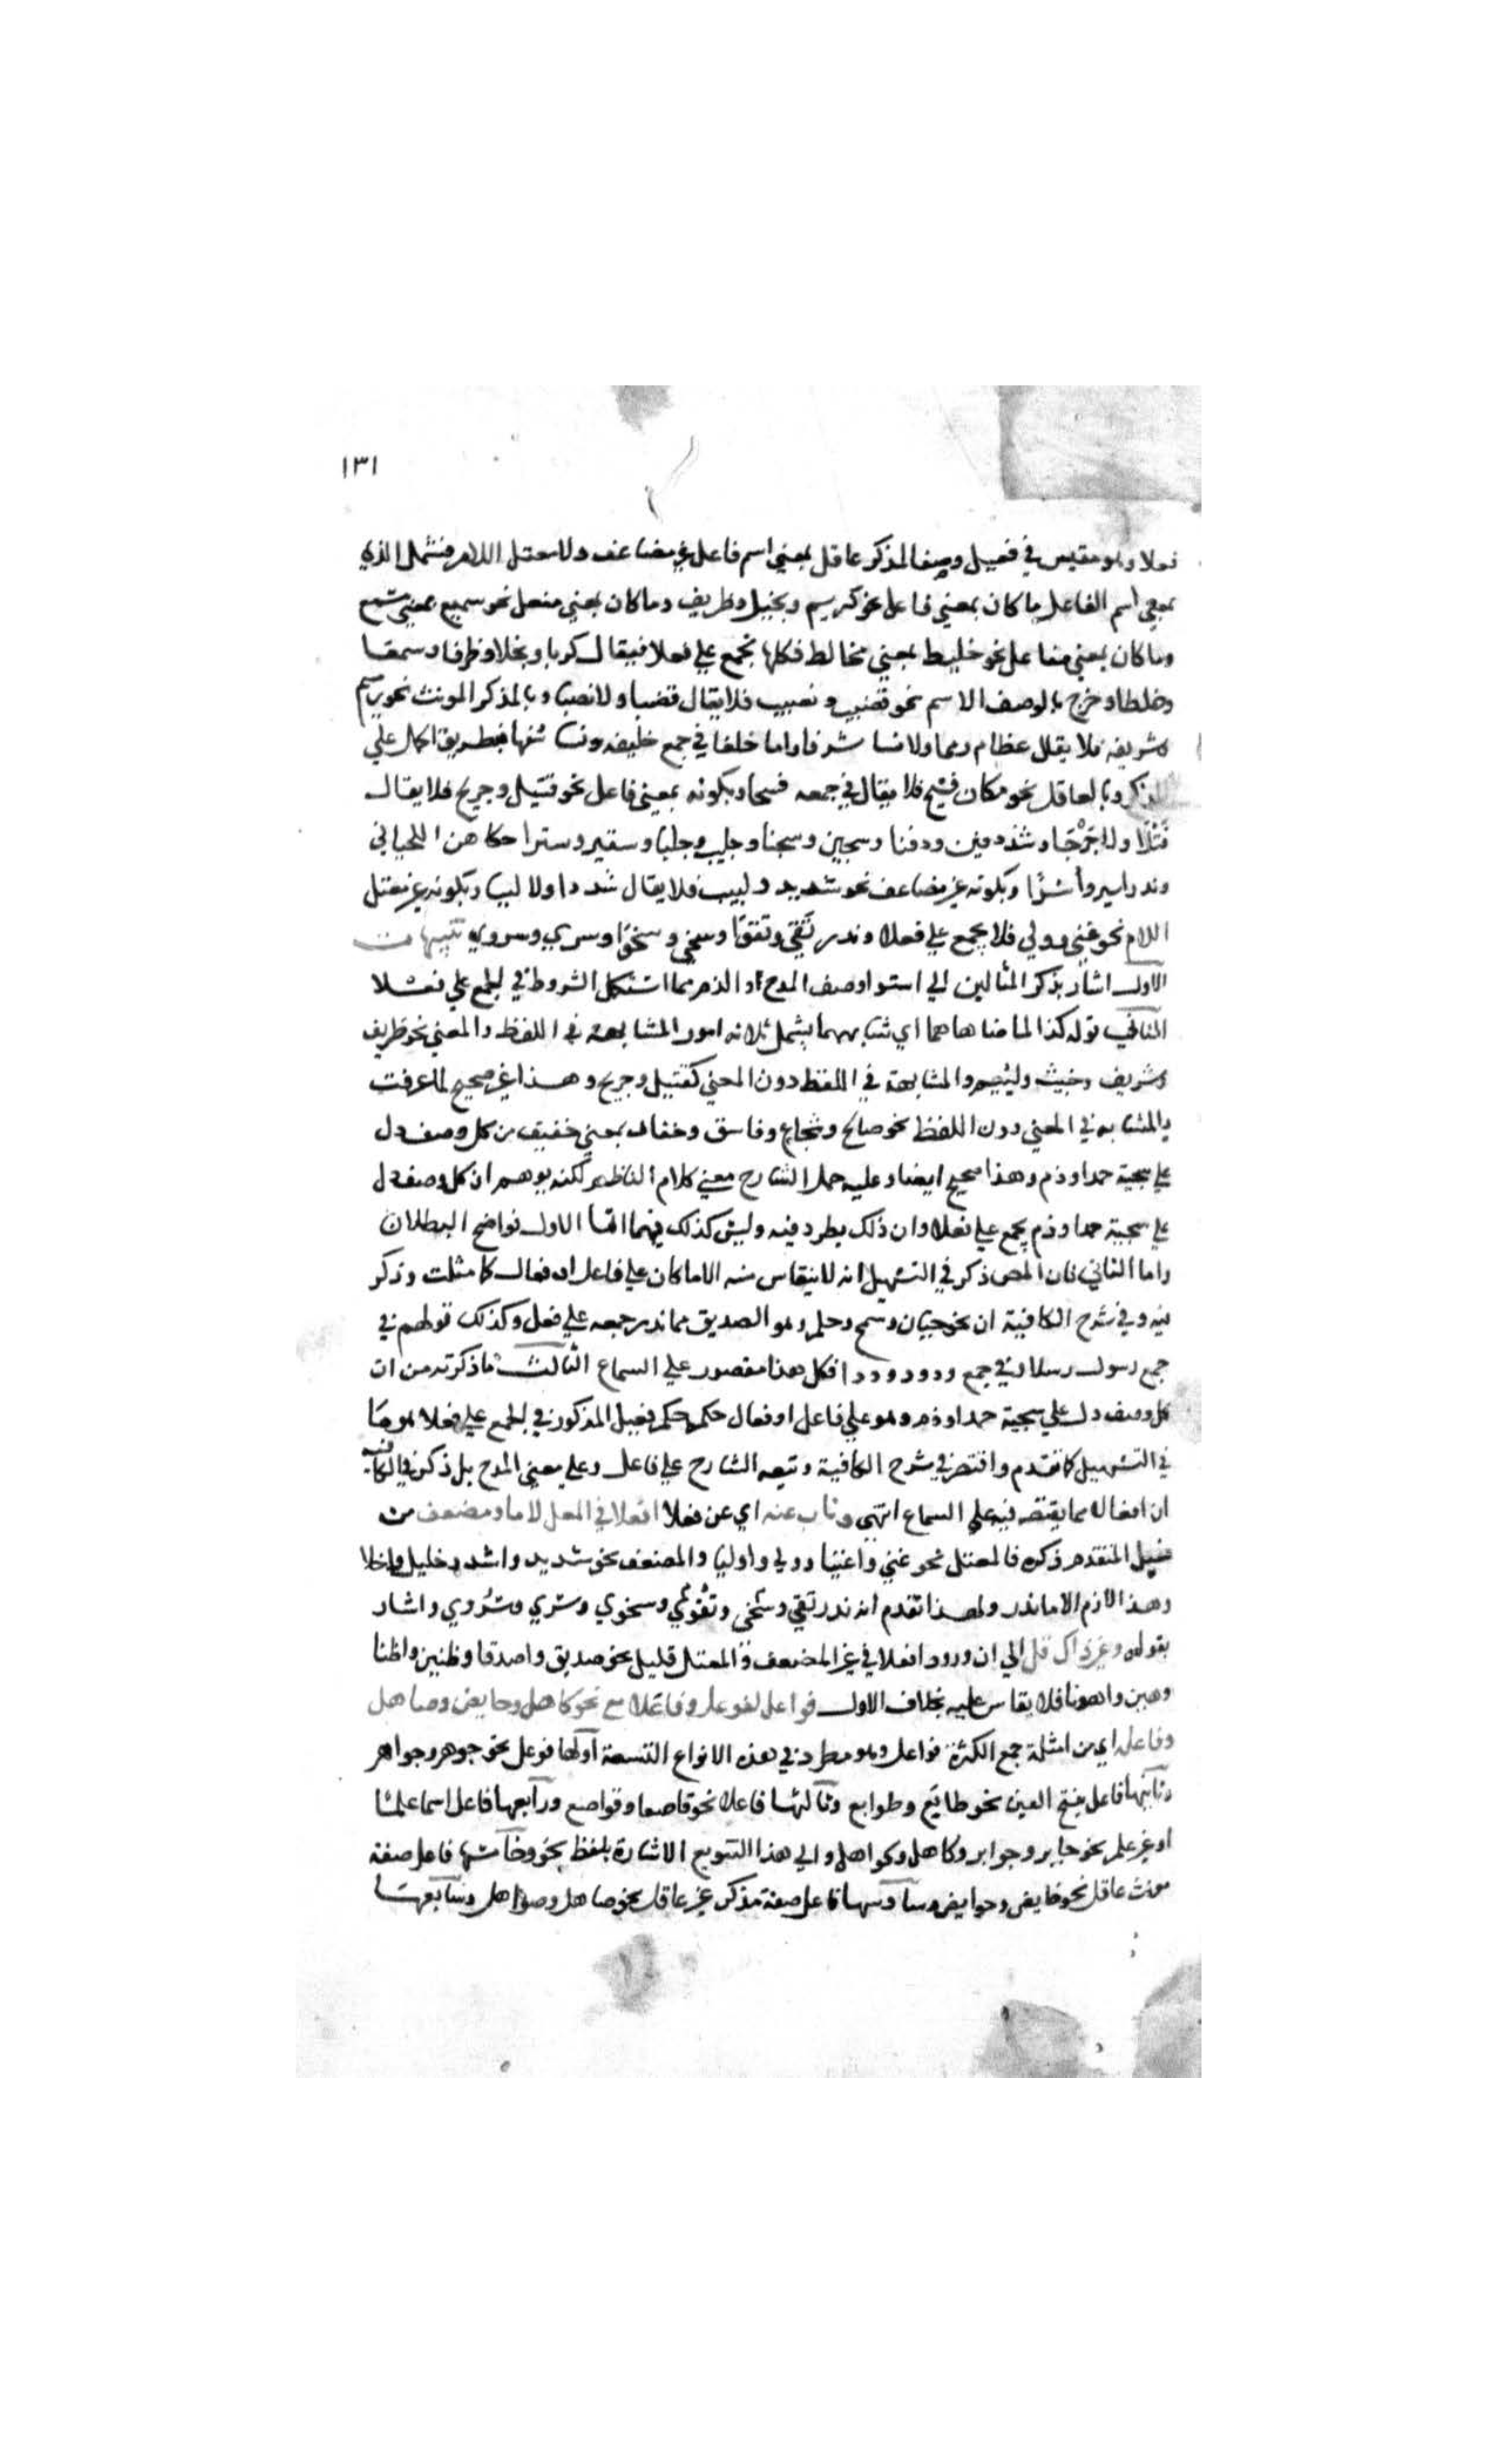 ١٣١
فعلا وهو مقيس في فعيل وصفا لمذكر عاقل بمعني اسم فاعل غير مضاعف ولا معتل اللام فشمل الذي
بمعني اسم الفاعل ما كان بمعني فاعل نحو كريم وبخيل وظريف وما كان بمعني مفعل نحو سميع بمعني مسمع
وما كان بمعني مفاعل نحو خليط بمعني مخالط فكلها تجمع علي فعلا فيقال كرما وبخلا وظرفا وسمعا
وخلطا وخرج بالوصف الاسم نحو قضيب ونصيب فلا يقال قضبا ولا نصبا وبالمذكر المونث نحو رميم
وشريفه فلا يقال عظام رمما ولا نسا شرفا واما خلفا في جمع خليفه ونسا سفها فبطريق الحمل علي
المذكر وبالعاقل نحو مكان فسيح فلا يقال في جمعه فسحا وبكونه بمعني فاعل نحو قتيل وجريح فلا يقال
قتلا ولا جرحا وشذ دفين ودفنا وسجين وسجنا وجليب وجلبا وستير وسترا حكاهن اللحياني
وندر اسير وأسرا وبكونه غير مضاعف نحو شديد ولبيب فلا يقال شددا ولا لببا وبكونه غير معتل
اللام نحو غني وولي فلا يجمع علي فعلا وندر تقي وتقوا وسخي وسخوا وسري وسروي تنبيهات
الاول اشار بذكر المثالين الي استوا وصف المدح والذم مما استكمل الشروط في الجمع علي فعلا
الثاني قوله كذا لما ضاهاهما اي شابههما يشمل ثلاثه امور المشابهة في اللفظ والمعني نحو ظريف
وشريف وخبيث ولييم والمشابهة في اللفظ دون المعني كقتيل وجريح وهذا غير صحيح لما عرفت
والمشابه في المعني دون اللفظ نحو صالح وشجاع وفاسق وخفاف بمعني خفيف من كل وصف دل
علي سجية حمد او ذم وهذا صحيح ايضا وعليه حمل الشارح معني كلام الناظم لكنه يوهم ان كل وصف دل
علي سجية حمد او ذم يجمع علي فعلا وان ذلك يطرد فيه وليس كذلك فيهما اما الاول فواضح البطلان
واما الثاني فان المص ذكر في التسهيل انه لا ينقاس منه الا ما كان علي فاعل او فعال كما مثلت وذكر
فيه وفي شرح الكافية ان نحو جبان وسمح وحلم وهو الصديق مما ندر جمعه علي فعلا وكذلك قولهم في
جمع رسول رسلا وفي جمع ودود وددا فكل هذا مقصور علي السماع الثالث ما ذكرته من ان
كل وصف دل علي سجية حمد او ذم وهو علي فاعل او فعال حكمه حكم فعيل المذكور في الجمع علي فعلا هو ما
في التسهيل كما تقدم واقتصر في شرح الكافية وتبعه الشارح علي فاعل وعلي معني المدح بل ذكر في الكافية
ان افعاله مما يقتصر فيه علي السماع انتهي وناب عنه اي عن فعلا افعلا في المعل لاما ومضعف من
فعيل المتقدم ذكره فالمعتل نحو غني واغنيا وولي واوليا والمضعف نحو شديد واشدد وخليل واخلا
وهذا لازم الا ما ندر ولهذا تقدم انه ندر تقي وسخي وتقوي وسخوي وسري وسروي واشار
بقوله وغير ذاك قل الي ان ورود افعلا في غير المضعف والمعتل قليل نحو صديق واصدقا وظنين واظنا
وهين واهونا فلا يقاس عليه بخلاف الاول فواعل لفوعل وفاعل وفاعلا مع نحو كاهل وحايض وصاهل
وفاعله اي من امثلة جمع الكثرة فواعل وهو مطرد في هذه الانواع التسعة اولها فوعل نحو جوهر وجواهر
وثانيها فاعل بفتح العين نحو طابع وطوابع وثالثها فاعلا نحو قاصعا وقواصع ورابعها فاعل اسما علما
او غير علم نحو جابر وجوابر وكاهل وكواهل والي هذا التنويع الاشارة بلفظ نحو وخامسها فاعل صفة
مونث عاقل نحو حايض وحوايض وسادسها فاعل صفة مذكر غير عاقل نحو صاهل وصواهل وسابعها